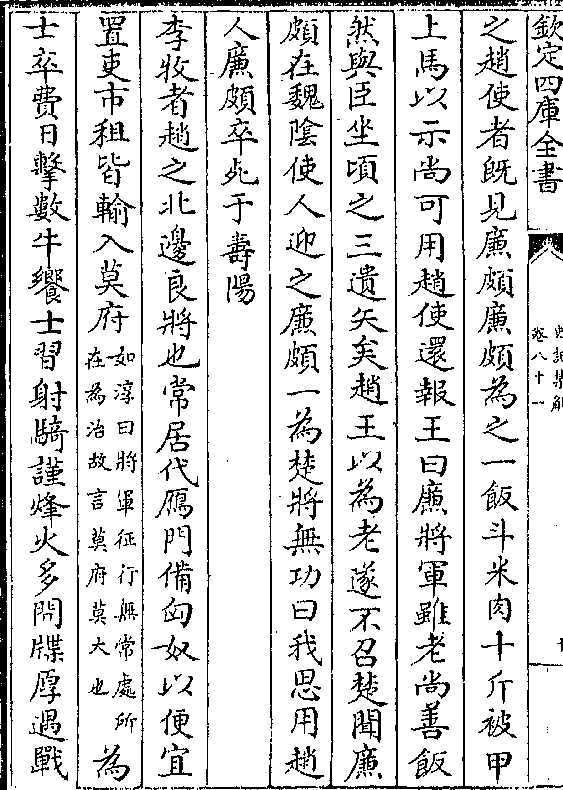 欽定四庫全書
史記集解
卷八十一
之趙使者既見廉頗廉頗為之一飯斗米肉十斤被甲
上馬以示尚可用趙使還報王曰廉將軍雖老尚善飯
然與臣坐頃之三遺矢矣趙王以為老遂不召楚聞廉
頗在魏陰使人迎之廉頗一為楚將無功曰我思用趙
人廉頗卒死于壽陽
李牧者趙之北邊良將也常居代鴈門備匈奴以便宜
置吏市租皆輸入莫府如淳曰將軍征行無常處所在為治故言莫府莫大也為
士卒費日擊數牛饗士習射騎謹烽火多間牒厚遇戰